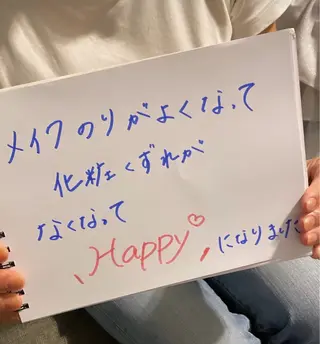 メイクのりがよくなって
化粧くずれが
なくなって
、Happy♡、になりました